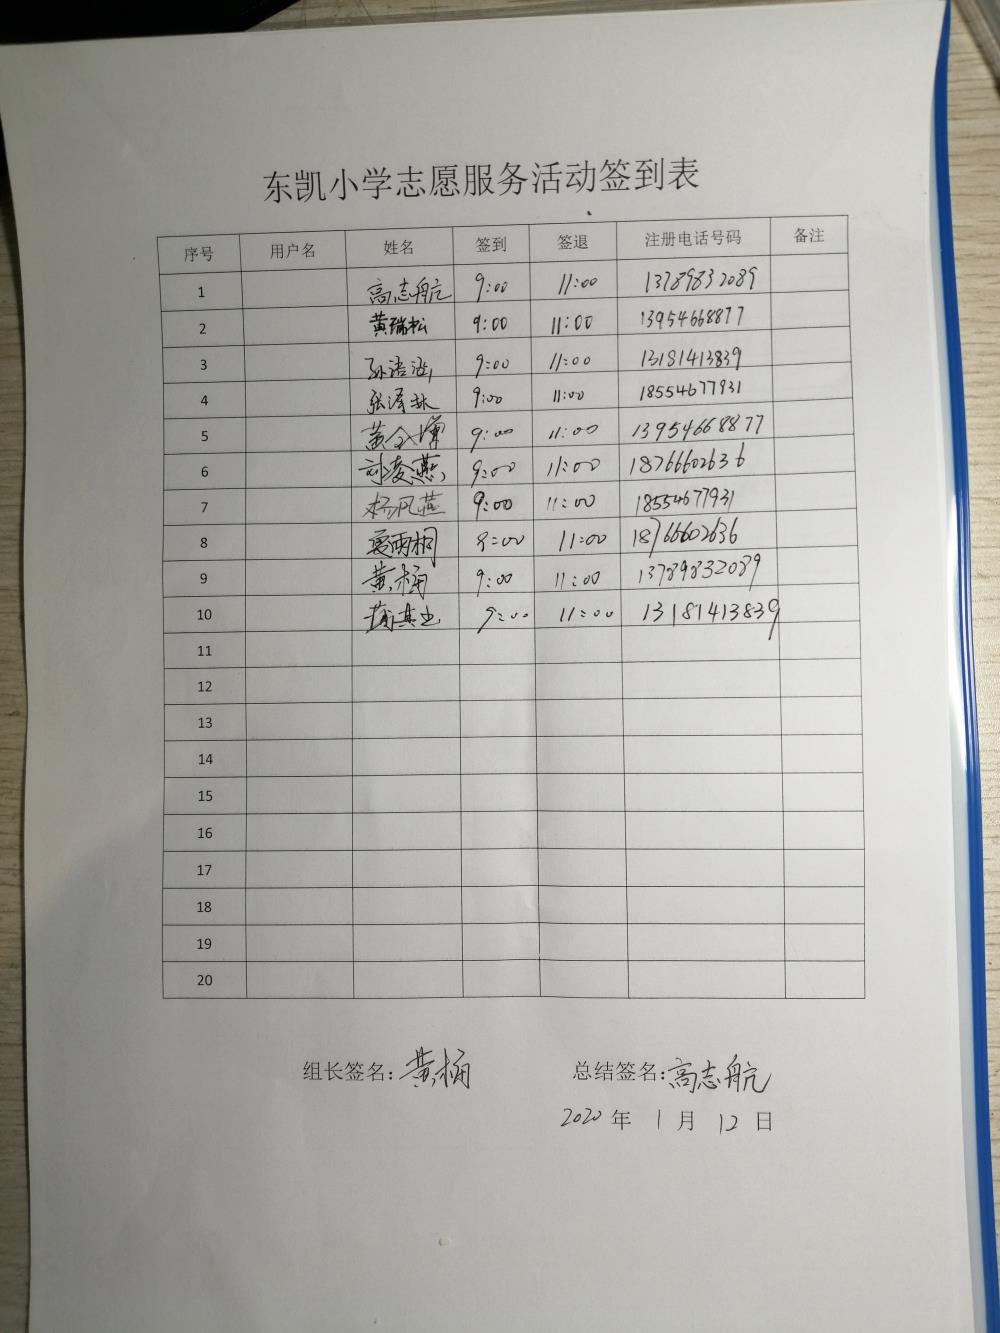 东凯小学志愿服务活动签到表
序号 用户名 姓名 签到 签退 注册电话号码 备注
1 高志航 9:00 11:00 13789832089
2 黄瑞松 9:00 11:00 13954668877
3 孙浩 9:00 11:00 13181413839
4 张泽林 9:00 11:00 18554677931
5 黄 9:00 11:00 13954668877
6 刘凌燕 9:00 11:00 18766602636
7 杨风燕 9:00 11:00 18554677931
8 夏雨桐 9:00 11:00 18766602636
9 黄桶 9:00 11:00 13789832089
10 9:00 11:00 13181413839
11
12
13
14
15
16
17
18
19
20
组长签名：黄桶 总结签名：高志航
2020 年 1 月 12 日